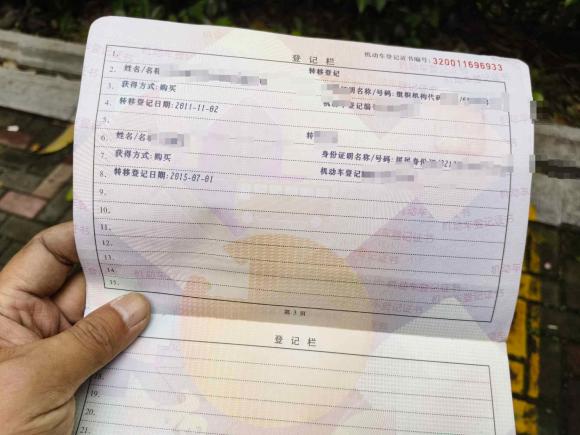 登记栏
机动车登记证书编号: 320011696933
1.
2. 姓名/名称 转移登记
明名称/号码: 组织机构代码
3. 获得方式: 购买
机动车登记编
4. 转移登记日期: 2011-11-02
5.
6. 姓名/名 转
身份证明名称/号码: 居民身份证
7. 获得方式: 购买
机动车登记
8. 转移登记日期: 2015-07-01
9.
10.
11.
12.
13.
14.
15.
第3页
登记栏
19.
20.
21.